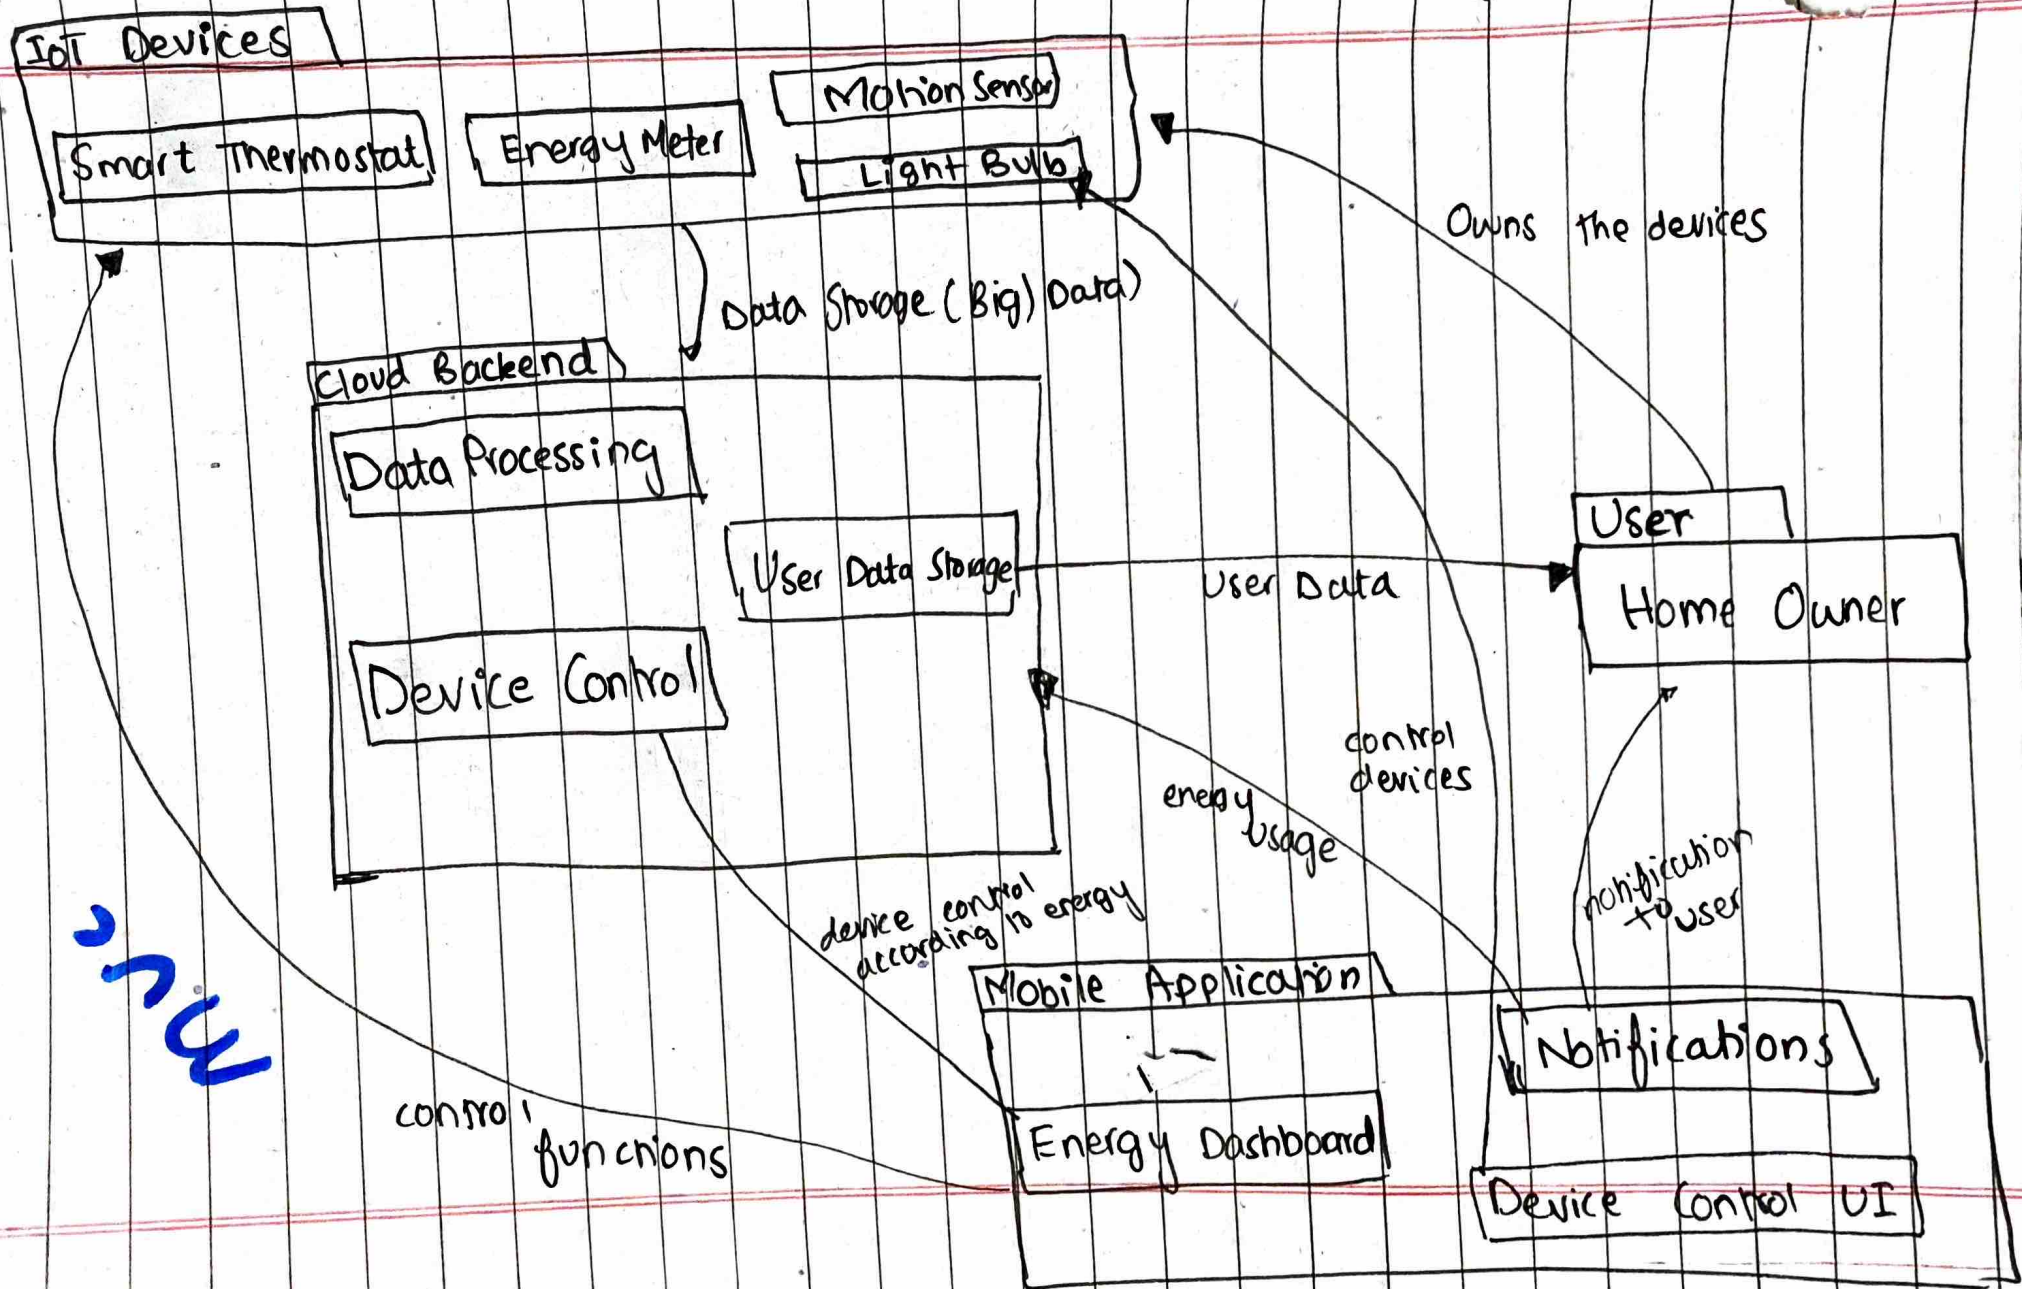 IoT Devices
Smart Thermostat
Energy Meter
Motion Sensor
Light Bulb
Owns the devices
Data Storage (Big) Data)
Cloud Backend
Data Processing
User Data Storage
Device Control
User Data
User
Home Owner
control
devices
energy
usage
notification
to user
device control
according to energy
Mobile Application
Notifications
Energy Dashboard
Device Control UI
control
functions